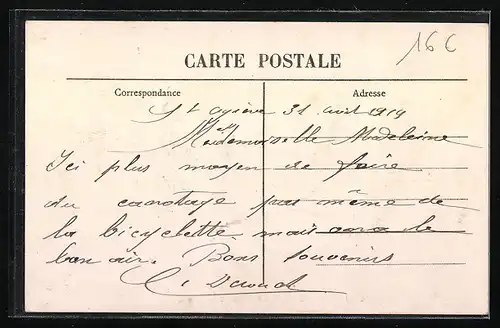 16 C
CARTE POSTALE
Correspondance
Adresse
St Agrève 31 Août 1919
Mademoiselle Madeleine
Ici plus moyen de faire
du canotage pas même de
la bicyclette mais on a le
bon air. Bons souvenirs